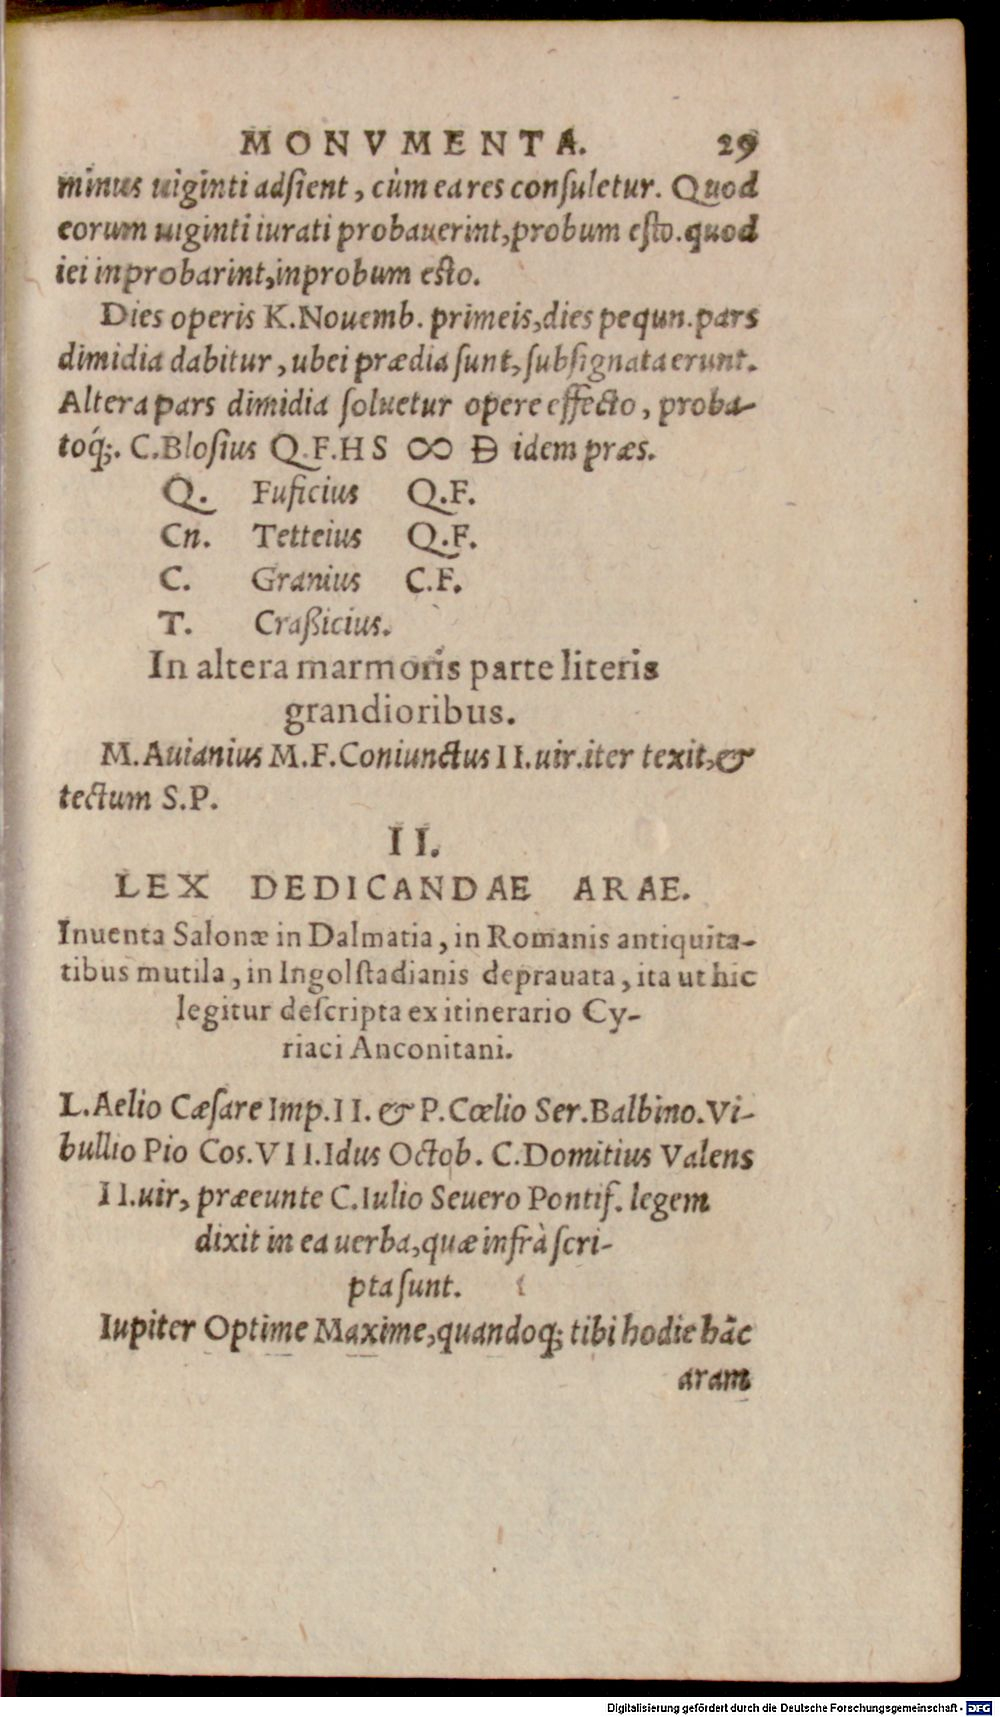 MONVMENTA. 29
minus uiginti adſient, cùm ea res conſuletur. Quod
eorum uiginti iurati probauerint, probum eſto. quod
iei inprobarint, inprobum eſto.
Dies operis K. Nouemb. primeis, dies pequn. pars
dimidia dabitur, ubei prædia ſunt, ſubſignata erunt.
Altera pars dimidia ſoluetur opere effecto, proba-
toq́;. C. Bloſius Q. F. HS ∞ D idem præs.
Q. Fuficius Q.F.
Cn. Tetteius Q.F.
C. Granius C.F.
T. Craßicius.
In altera marmoris parte literis
grandioribus.
M. Auianius M. F. Coniunctus II. uir. iter texit, &
tectum S.P.
II.
LEX DEDICANDAE ARAE.
Inuenta Salonæ in Dalmatia, in Romanis antiquita-
tibus mutila, in Ingolſtadianis deprauata, ita ut hic
legitur deſcripta ex itinerario Cy-
riaci Anconitani.
L. Aelio Cæſare Imp. II. & P. Cœlio Ser. Balbino. Vi-
bullio Pio Cos. VII. Idus Octob. C. Domitius Valens
II. uir, præeunte C. Iulio Seuero Pontif. legem
dixit in ea uerba, quæ infrà ſcri-
pta ſunt.
Iupiter Optime Maxime, quandoq; tibi hodie hãc
aram
Digitalisierung gefördert durch die Deutsche Forschungsgemeinschaft - DFG